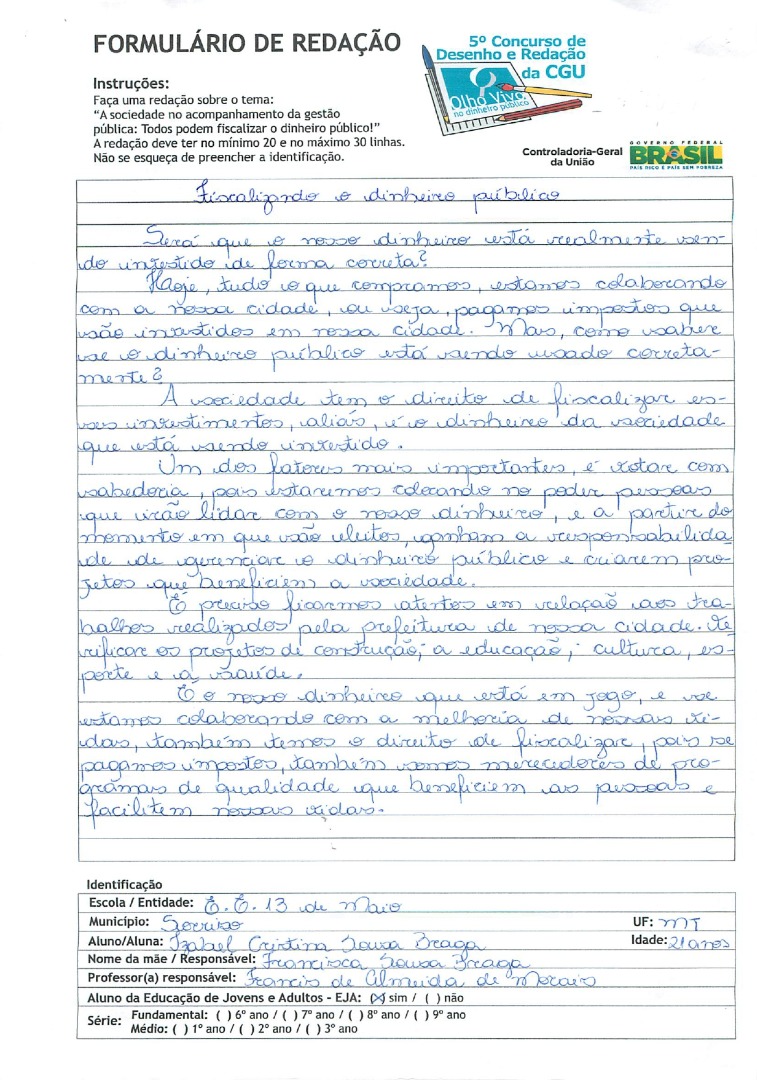 FORMULÁRIO DE REDAÇÃO
5º Concurso de
Desenho e Redação
da CGU
Olho Vivo
no dinheiro público
Instruções:
Faça uma redação sobre o tema:
“A sociedade no acompanhamento da gestão
pública: Todos podem fiscalizar o dinheiro público!”
A redação deve ter no mínimo 20 e no máximo 30 linhas.
Não se esqueça de preencher a identificação.
Controladoria-Geral
da União
GOVERNO FEDERAL
BRASIL
PAÍS RICO É PAÍS SEM POBREZA
Fiscalizando o dinheiro público
Será que o nosso dinheiro está realmente sen-
do investido de forma correta?
Hoje, tudo o que compramos, estamos colaborando
com a nossa cidade, ou seja, pagamos impostos que
são investidos em nossa cidade. Mais, como saber
se o dinheiro público está sendo usado correta-
mente?
A sociedade tem o direito de fiscalizar es-
ses investimentos, aliás, é o dinheiro da sociedade
que está sendo investido.
Um dos fatores mais importantes, é votar com
sabedoria, pois estaremos colocando no poder pessoas
que irão lidar com o nosso dinheiro, e a partir do
momento em que são eleitos, ganham a responsabilida
de de gerenciar o dinheiro público e criarem pro-
jetos que beneficiem a sociedade.
É preciso ficarmos atentos em relação aos tra-
balhos realizados pela prefeitura de nossa cidade. Ve
rificar os projetos de construção, a educação, cultura, es-
porte e a saúde.
É o nosso dinheiro que está em jogo, e se
estamos colaborando com a melhoria de nossas vi-
das, também temos o direito de fiscalizar, pois se
pagamos impostos, também somos merecedores de pro-
gramas de qualidade que beneficiem as pessoas e
facilitem nossas vidas.
Identificação
Escola / Entidade: E. E. 13 de Maio
Município: Sorriso UF: MT
Aluno/Aluna: Izabel Cristina Sousa Braga Idade: 21 anos
Nome da mãe / Responsável: Francisca Sousa Braga
Professor(a) responsável: Francis de Almeida de Morais
Aluno da Educação de Jovens e Adultos - EJA: (X) sim / ( ) não
Série: Fundamental: ( ) 6º ano / ( ) 7º ano / ( ) 8º ano / ( ) 9º ano
Médio: ( ) 1º ano / ( ) 2º ano / ( ) 3º ano